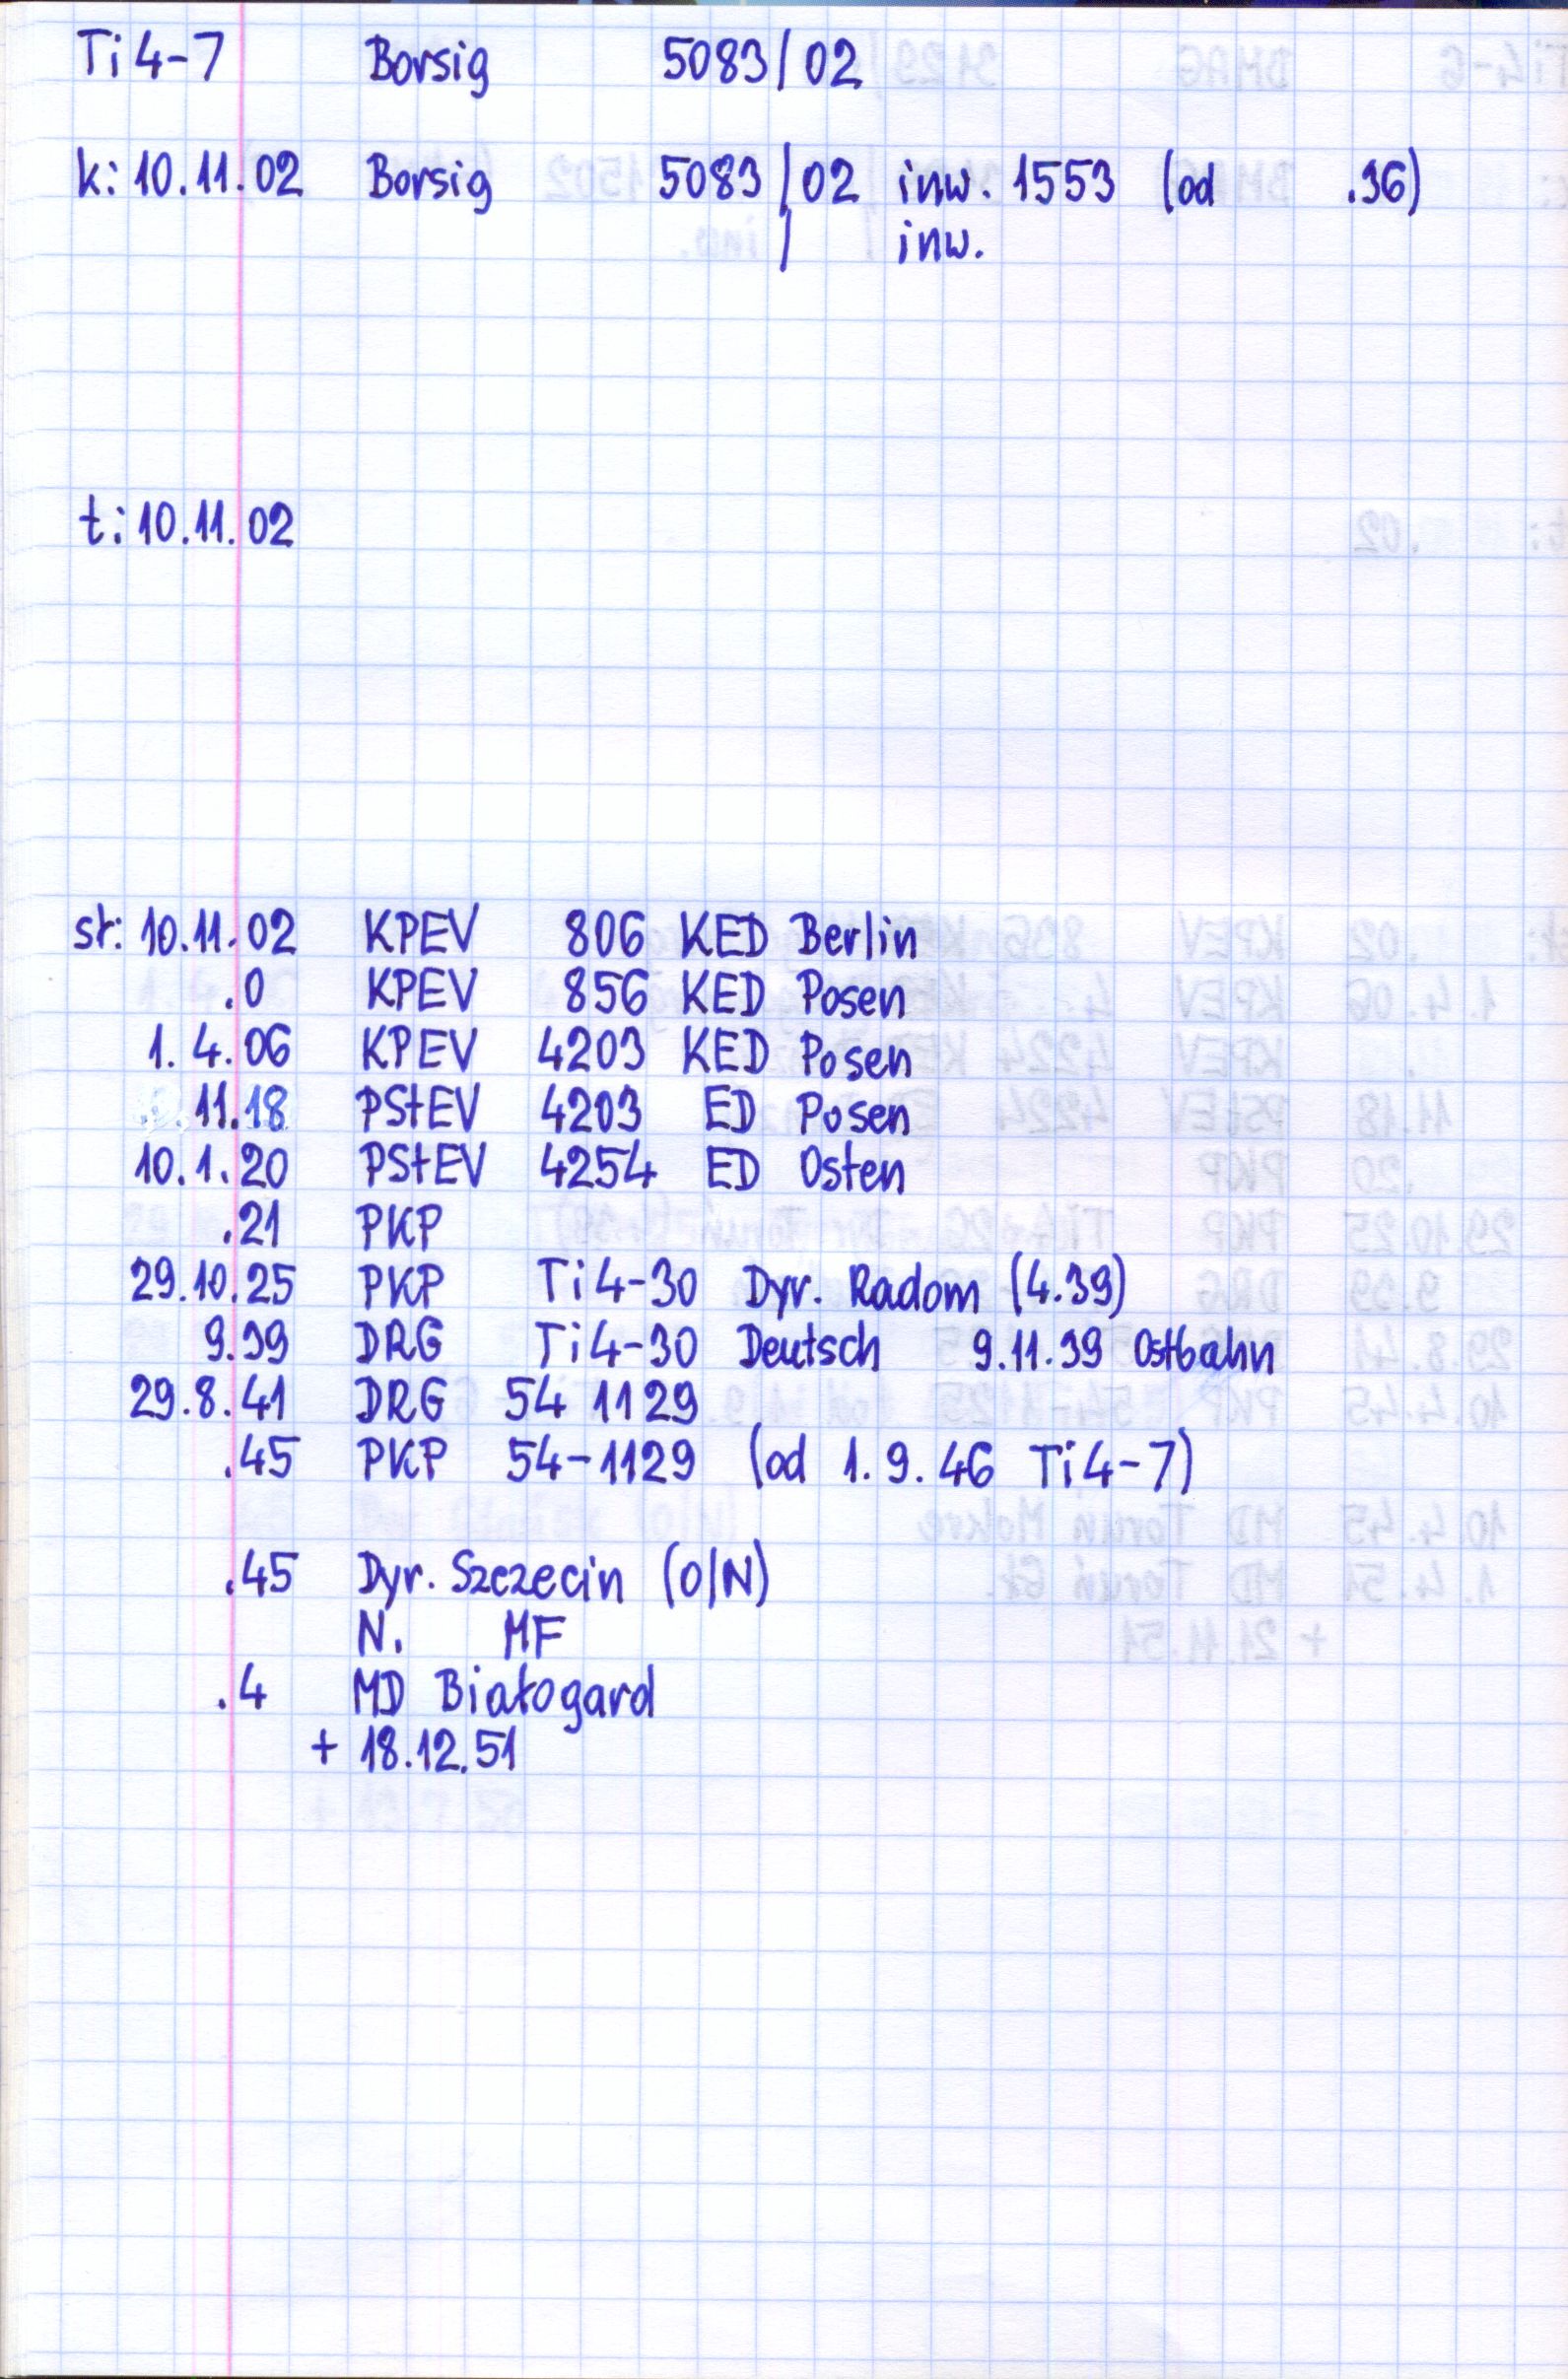 Ti4-7 Borsig 5083/02
k: 10.11.02 Borsig 5083/02 inw. 1553 (od .36)
/ inw.
t: 10.11.02
st: 10.11.02 KPEV 806 KED Berlin
.0 KPEV 856 KED Posen
1.4.06 KPEV 4203 KED Posen
.11.18 PStEV 4203 ED Posen
10.1.20 PStEV 4254 ED Osten
.21 PKP
29.10.25 PKP Ti4-30 Dyr. Radom (4.39)
9.39 DRG Ti4-30 Deutsch 9.11.39 Ostbahn
29.8.41 DRG 54 1129
.45 PKP 54-1129 (od 1.9.46 Ti4-7)
.45 Dyr. Szczecin (O/N)
N. MF
.4 MD Białogard
+ 18.12.51